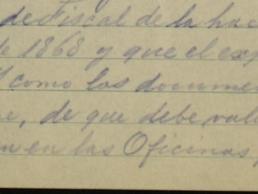 de Fiscal de la hac
de 1868 y que el exp
como los docume
, de que debe val
en las Oficinas